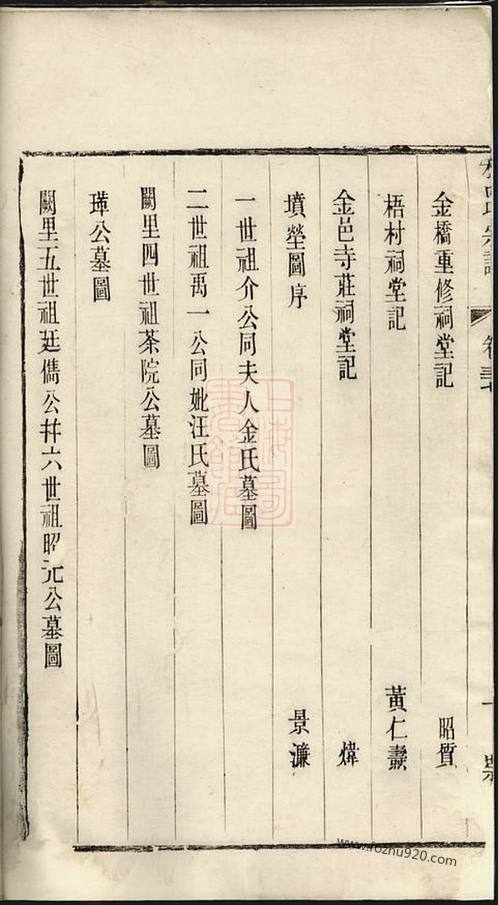 金橋重修祠堂記 昭質
梧村祠堂記 黃仁壽
金邑寺莊祠堂記 煒
墳塋圖序 景濂
一世祖介公同夫人金氏墓圖
二世祖禹一公同妣汪氏墓圖
闕里四世祖茶院公墓圖
璍公墓圖
闕里五世祖廷儁公幷六世祖昭元公墓圖
上海圖書館藏
www.fozhu920.com